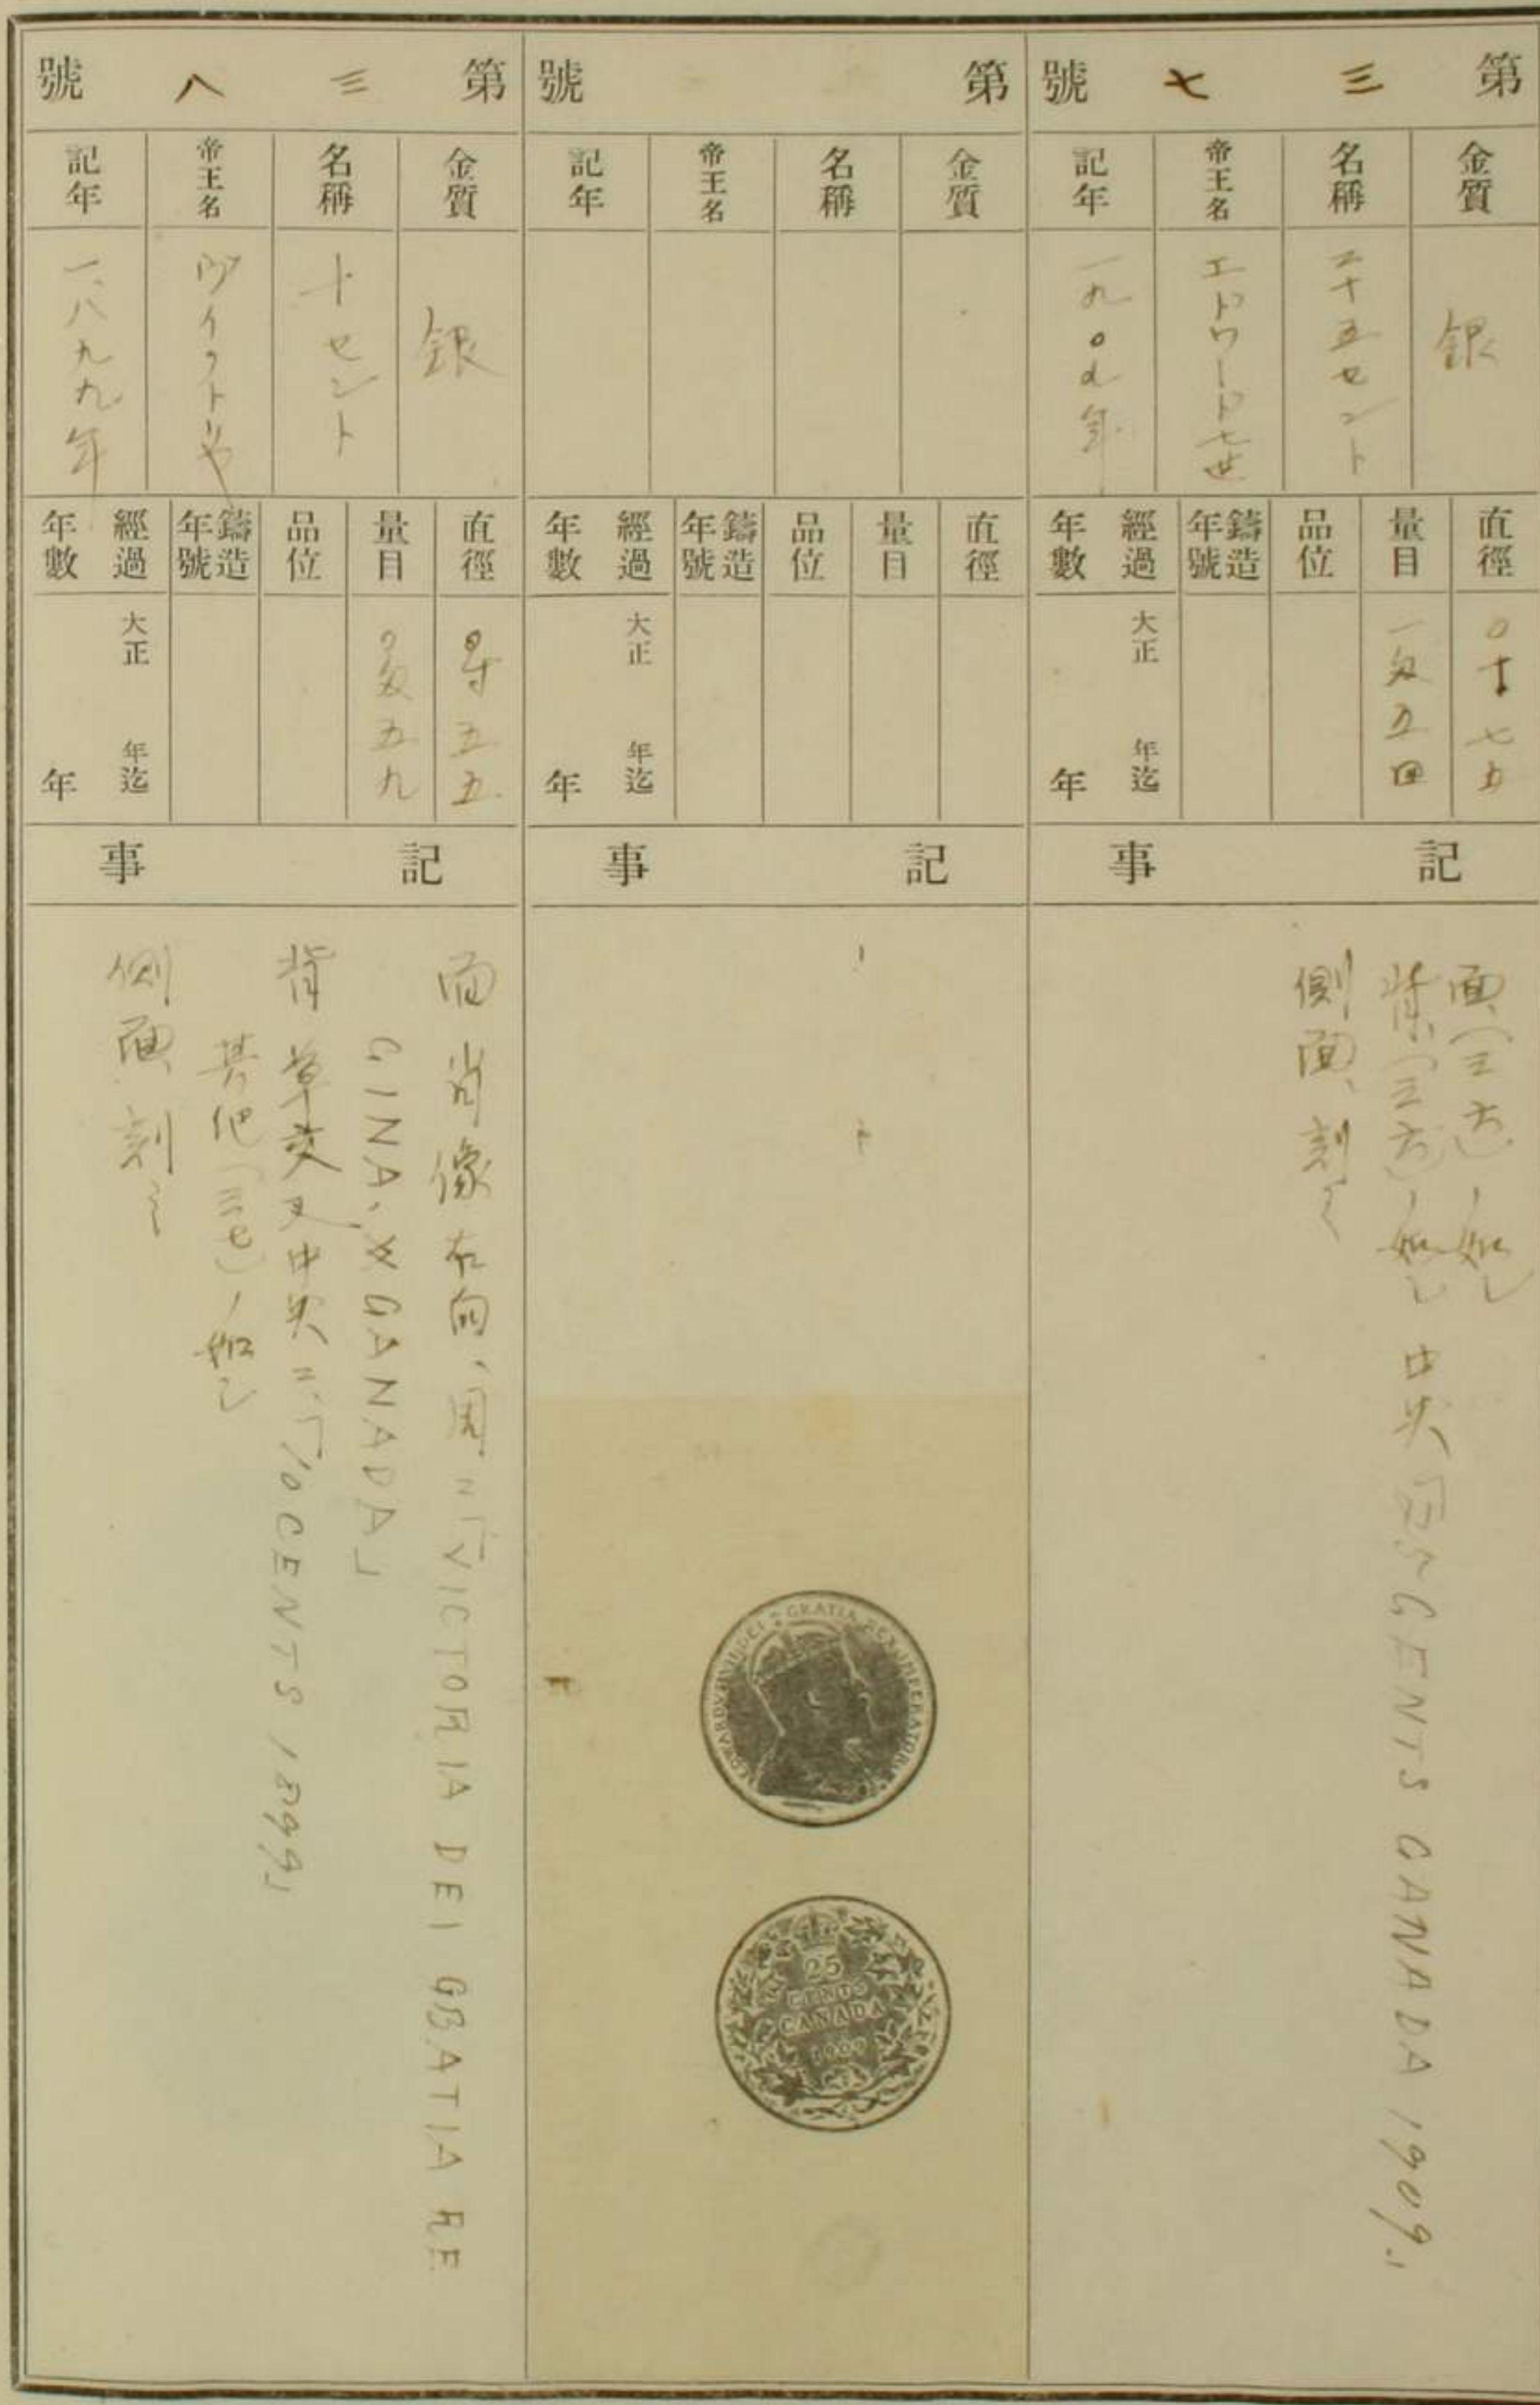 第三七號
金質
銀
名稱
二十五セント
帝王名
エドワード七世
記年
一九〇九年
直徑
〇寸七五
量目
一匁五四
品位
鑄造年號
經過年數
大正 年迄
年
記事
面(三六)ノ如シ
背(三六)ノ如シ 中央「25 CENTS CANADA 1909」
側面、刻ミ
第 號
金質
名稱
帝王名
記年
直徑
量目
品位
鑄造年號
經過年數
大正 年迄
年
記事
EDWARDVS VII DEI GRATIA REX IMPERATOR
25
CENTS
CANADA
1909
第三八號
金質
銀
名稱
十セント
帝王名
ヴィクトリヤ
記年
一八九九年
直徑
〇寸五五
量目
〇匁五九
品位
鑄造年號
經過年數
大正 年迄
年
記事
面 肖像右向、周ニ「VICTORIA DEI GRATIA RE
GINA. CANADA」
背 草交叉中央ニ「10 CENTS 1899」
其他(三七)ノ如シ
側面、刻ミ